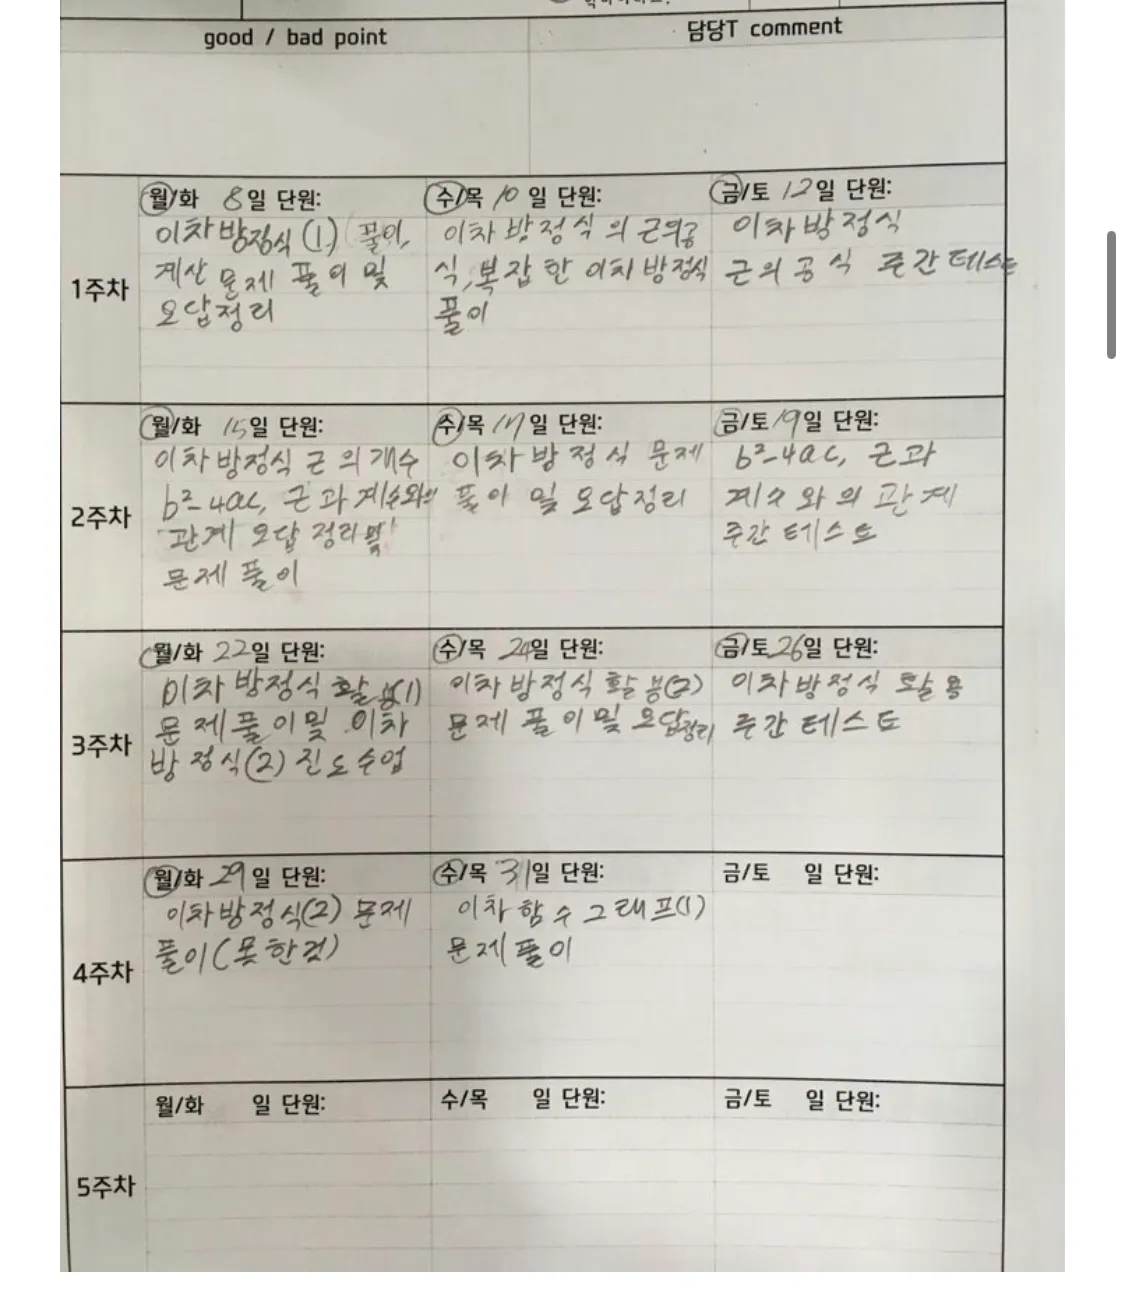 good / bad point
담당T comment
1주차
월/화 8일 단원:
이차방정식(1) 풀이,
계산 문제 풀이 및
오답정리
수/목 10일 단원:
이차방정식의 근의공
식, 복잡한 이차방정식
풀이
금/토 12일 단원:
이차방정식
근의공식 주간테스트
2주차
월/화 15일 단원:
이차방정식 근의개수
b²-4ac, 근과계수와의
관계 오답정리및
문제 풀이
수/목 17일 단원:
이차방정식 문제
풀이 및 오답정리
금/토 19일 단원:
b²-4ac, 근과
계수와의 관계
주간 테스트
3주차
월/화 22일 단원:
이차방정식 활용(1)
문제풀이및 이차
방정식(2) 진도수업
수/목 24일 단원:
이차방정식 활용(2)
문제 풀이및 오답정리
금/토 26일 단원:
이차방정식 활용
주간테스트
4주차
월/화 29일 단원:
이차방정식(2) 문제
풀이(못한것)
수/목 31일 단원:
이차함수그래프(1)
문제풀이
금/토 일 단원:
5주차
월/화 일 단원:
수/목 일 단원:
금/토 일 단원: